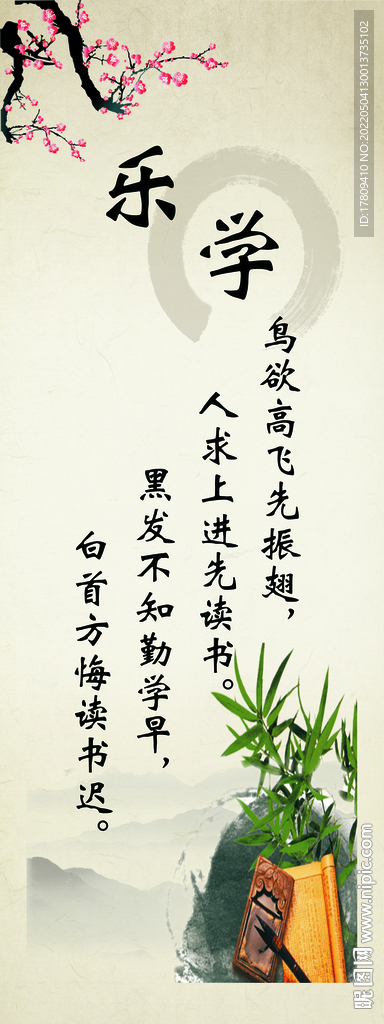 乐学
鸟欲高飞先振翅，
人求上进先读书。
黑发不知勤学早，
白首方悔读书迟。
ID:17809410 NO:20220504130013735102
昵图网 www.nipic.com